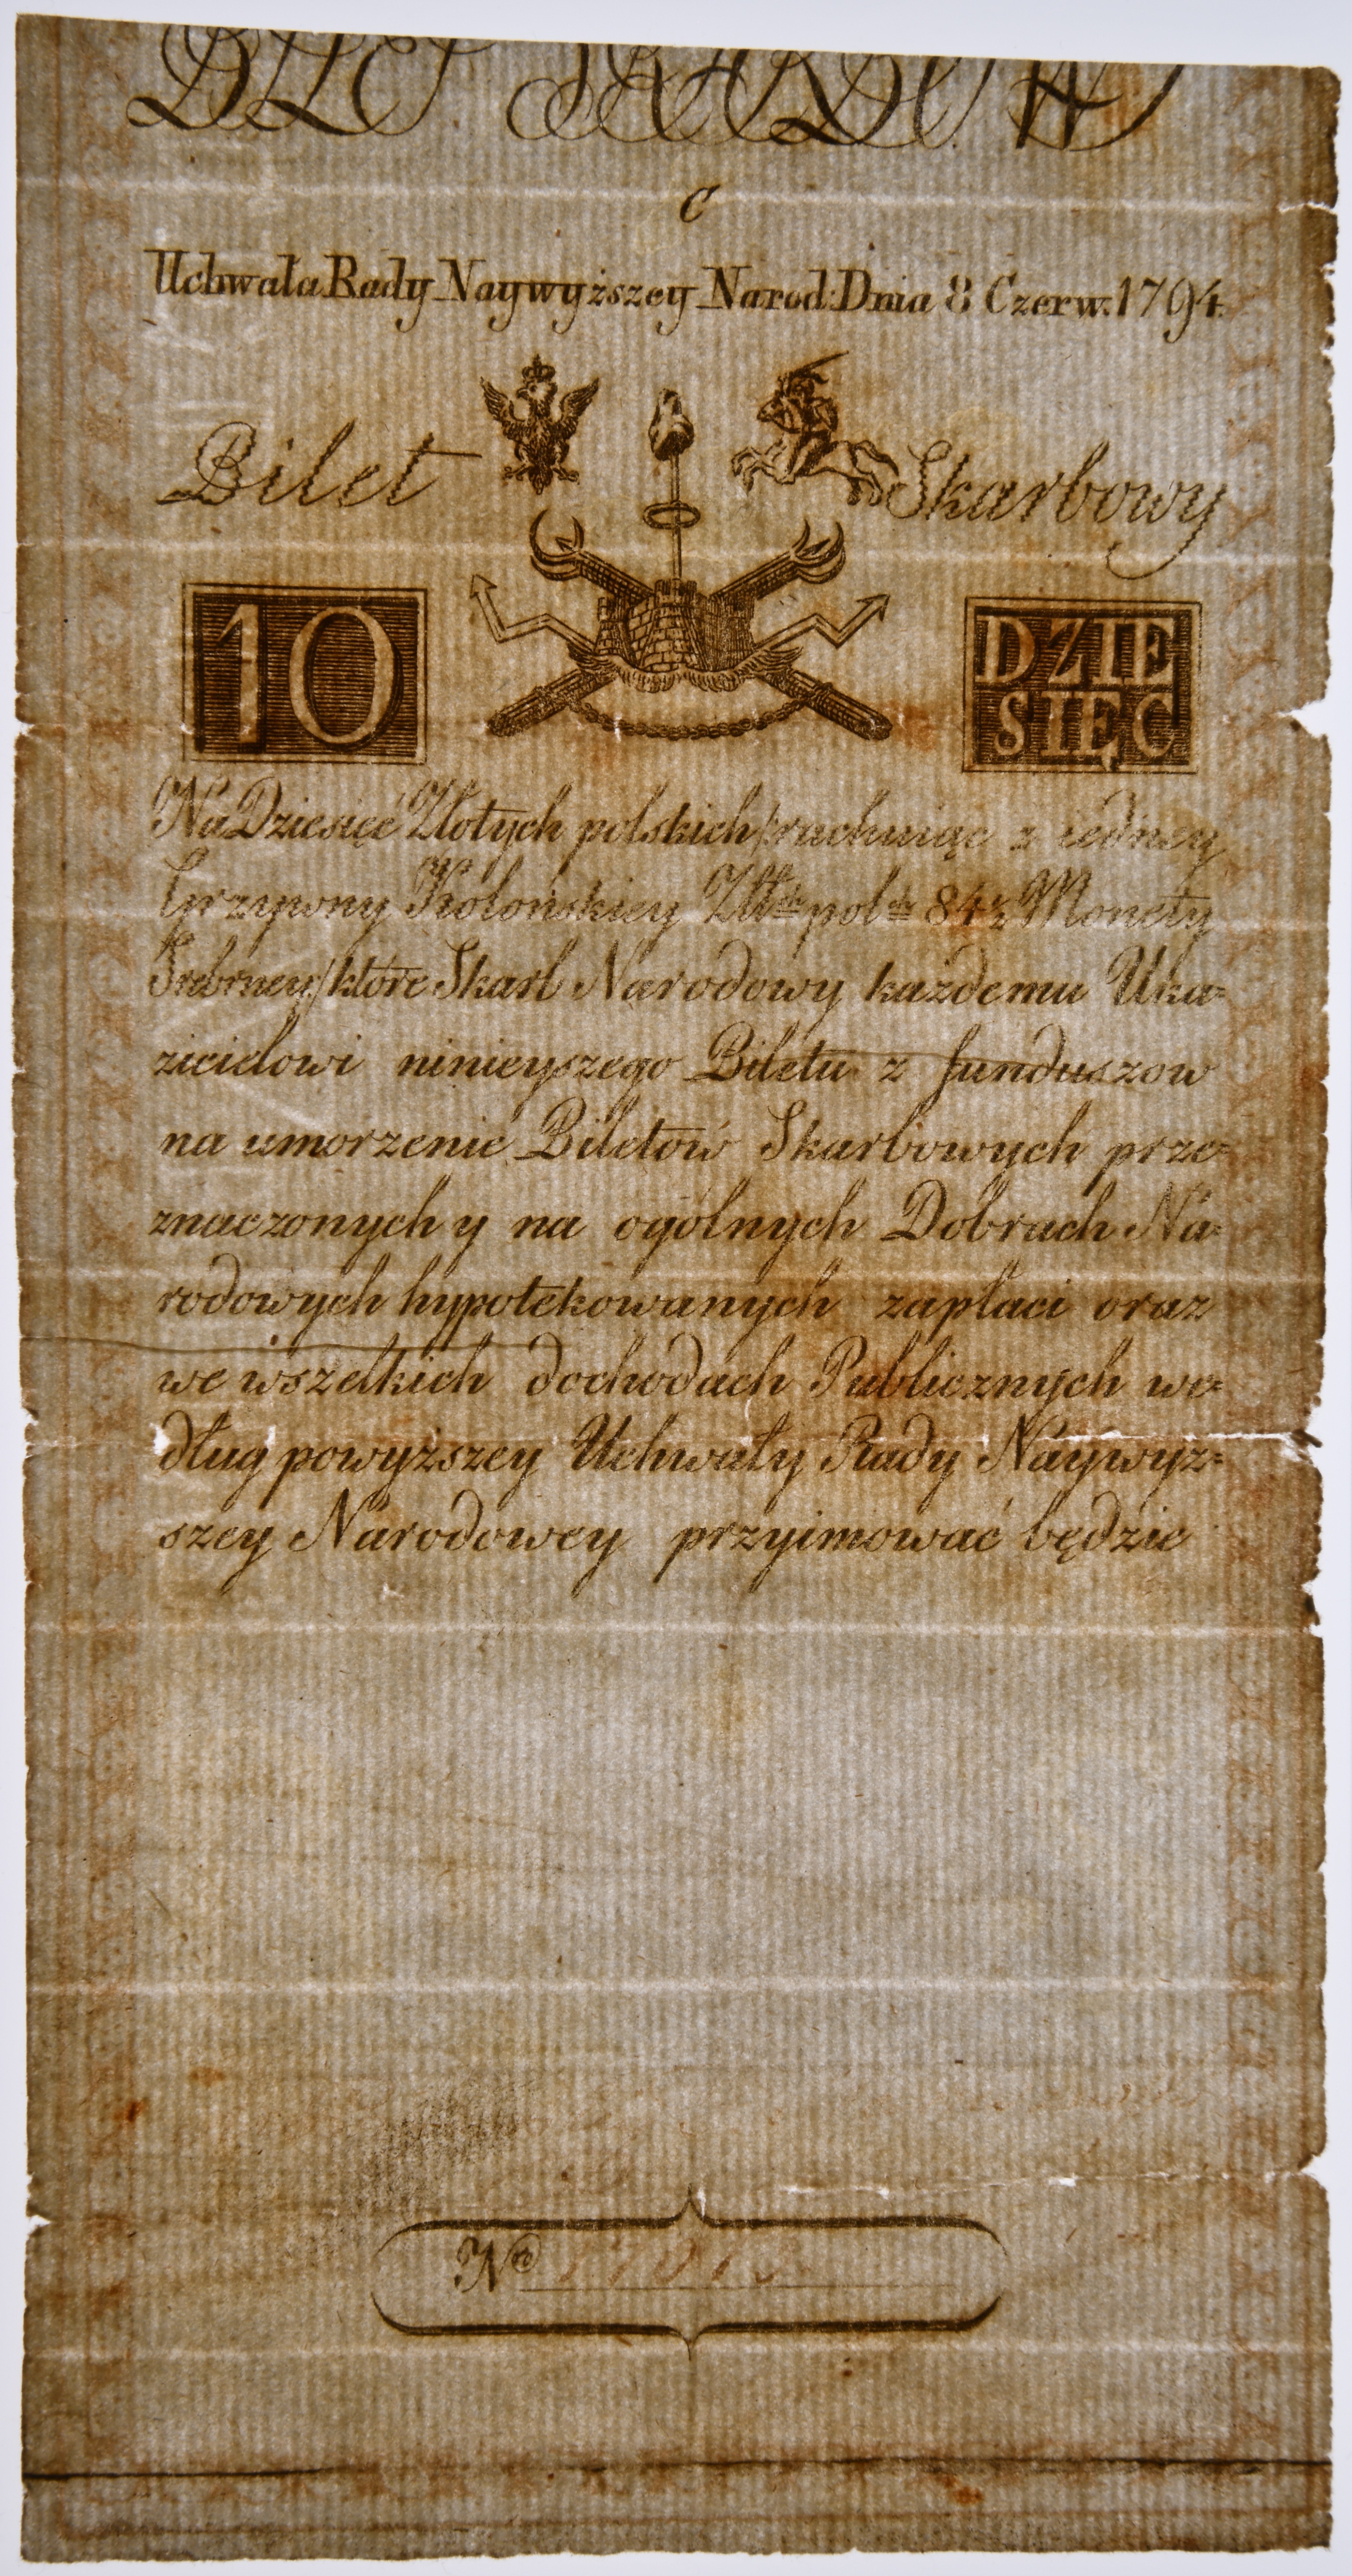 BILET SKARBOWY
C
Uchwała Rady Naywyższey Narod: Dnia 8 Czerw. 1794.
Bilet Skarbowy
10 DZIE
SIĘĆ
Na Dziesięć Złotych polskich /:rachuiąc z iedney
Grzywny Kolońskiey Złt:ch pol:ch 84½ Monety
Srebrney:/ które Skarb Narodowy każdemu Uka=
zicielowi ninieyszego Biletu z funduszow
na umorzenie Biletów Skarbowych prze=
znaczonych y na ogólnych Dobrach Na=
rodowych hypotekowanych zapłaci oraz
we wszelkich dochodach Publicznych we=
dług powyższey Uchwały Rady Naywyż=
szey Narodowey przyimować będzie
Nro